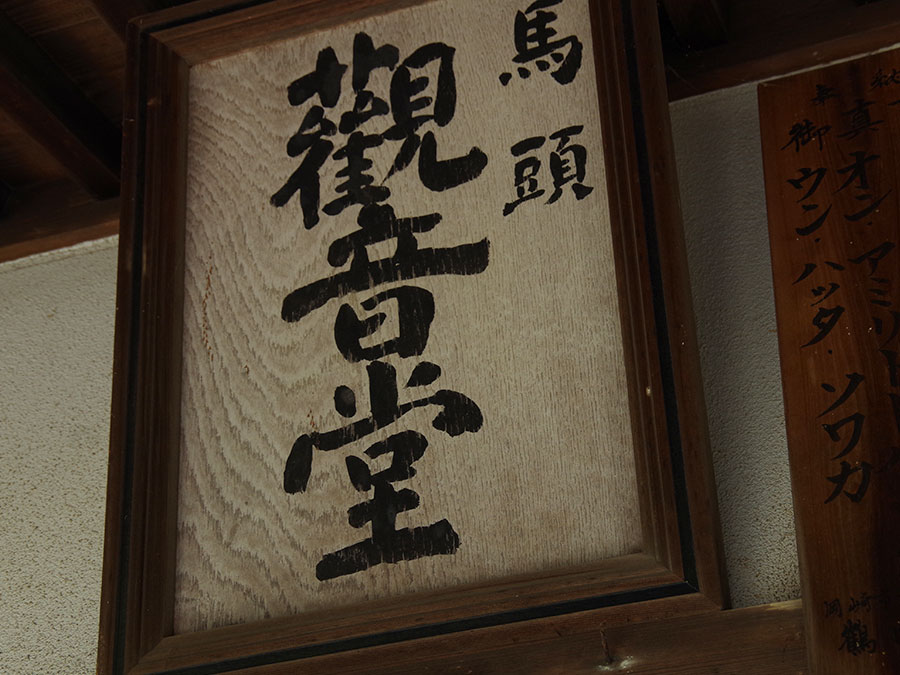 馬頭
觀音堂
真 オン・アミリト
御 ウン・ハッタ・ソワカ
岡崎
鶴